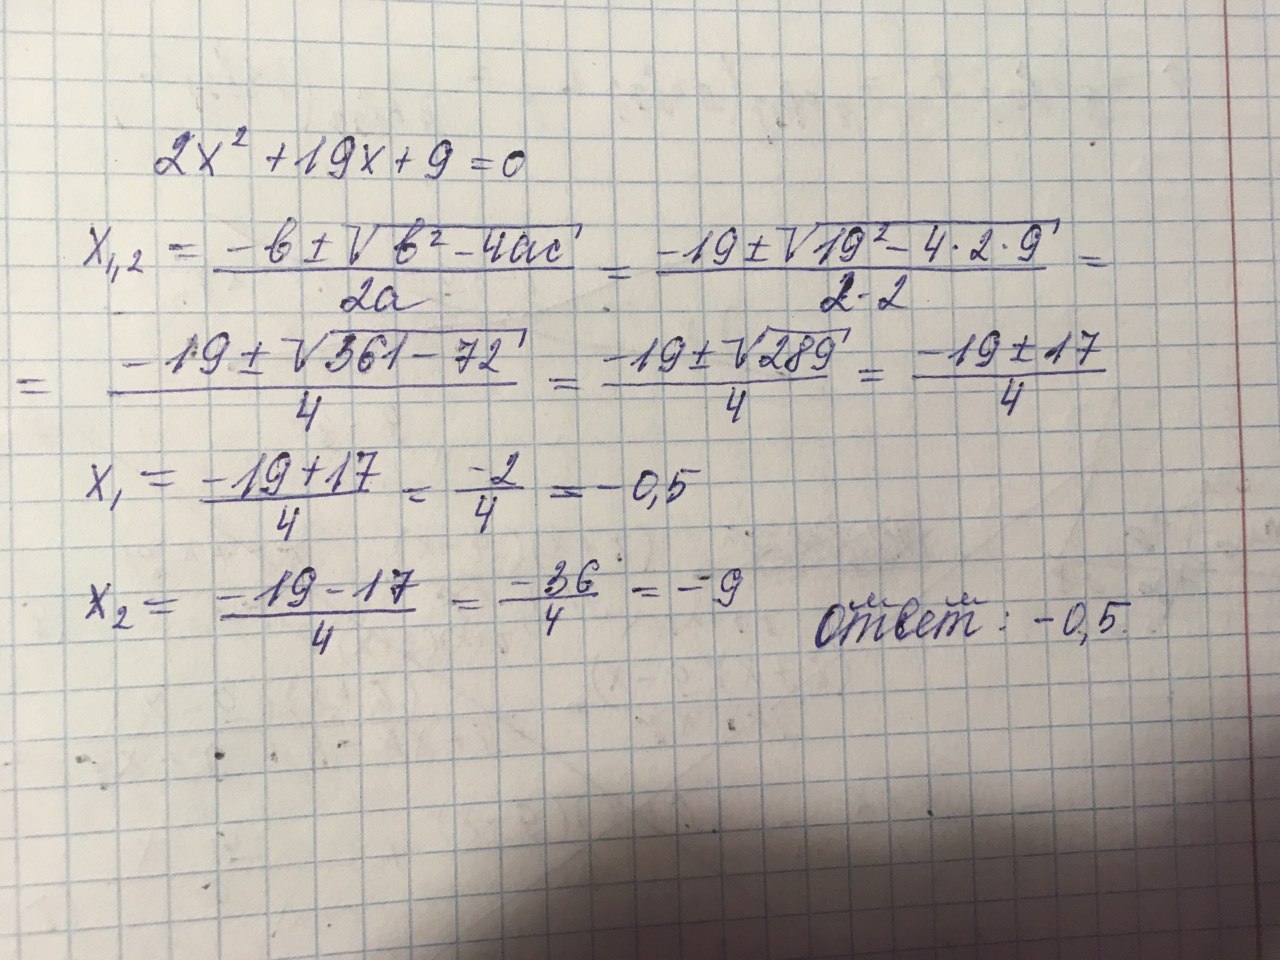 2x² + 19x + 9 = 0
x₁,₂ = (-b ± √(b² - 4ac))/(2a) = (-19 ± √(19² - 4·2·9))/(2·2) =
= (-19 ± √(361 - 72))/4 = (-19 ± √289)/4 = (-19 ± 17)/4
x₁ = (-19 + 17)/4 = -2/4 = -0,5
x₂ = (-19 - 17)/4 = -36/4 = -9
Ответ: -0,5